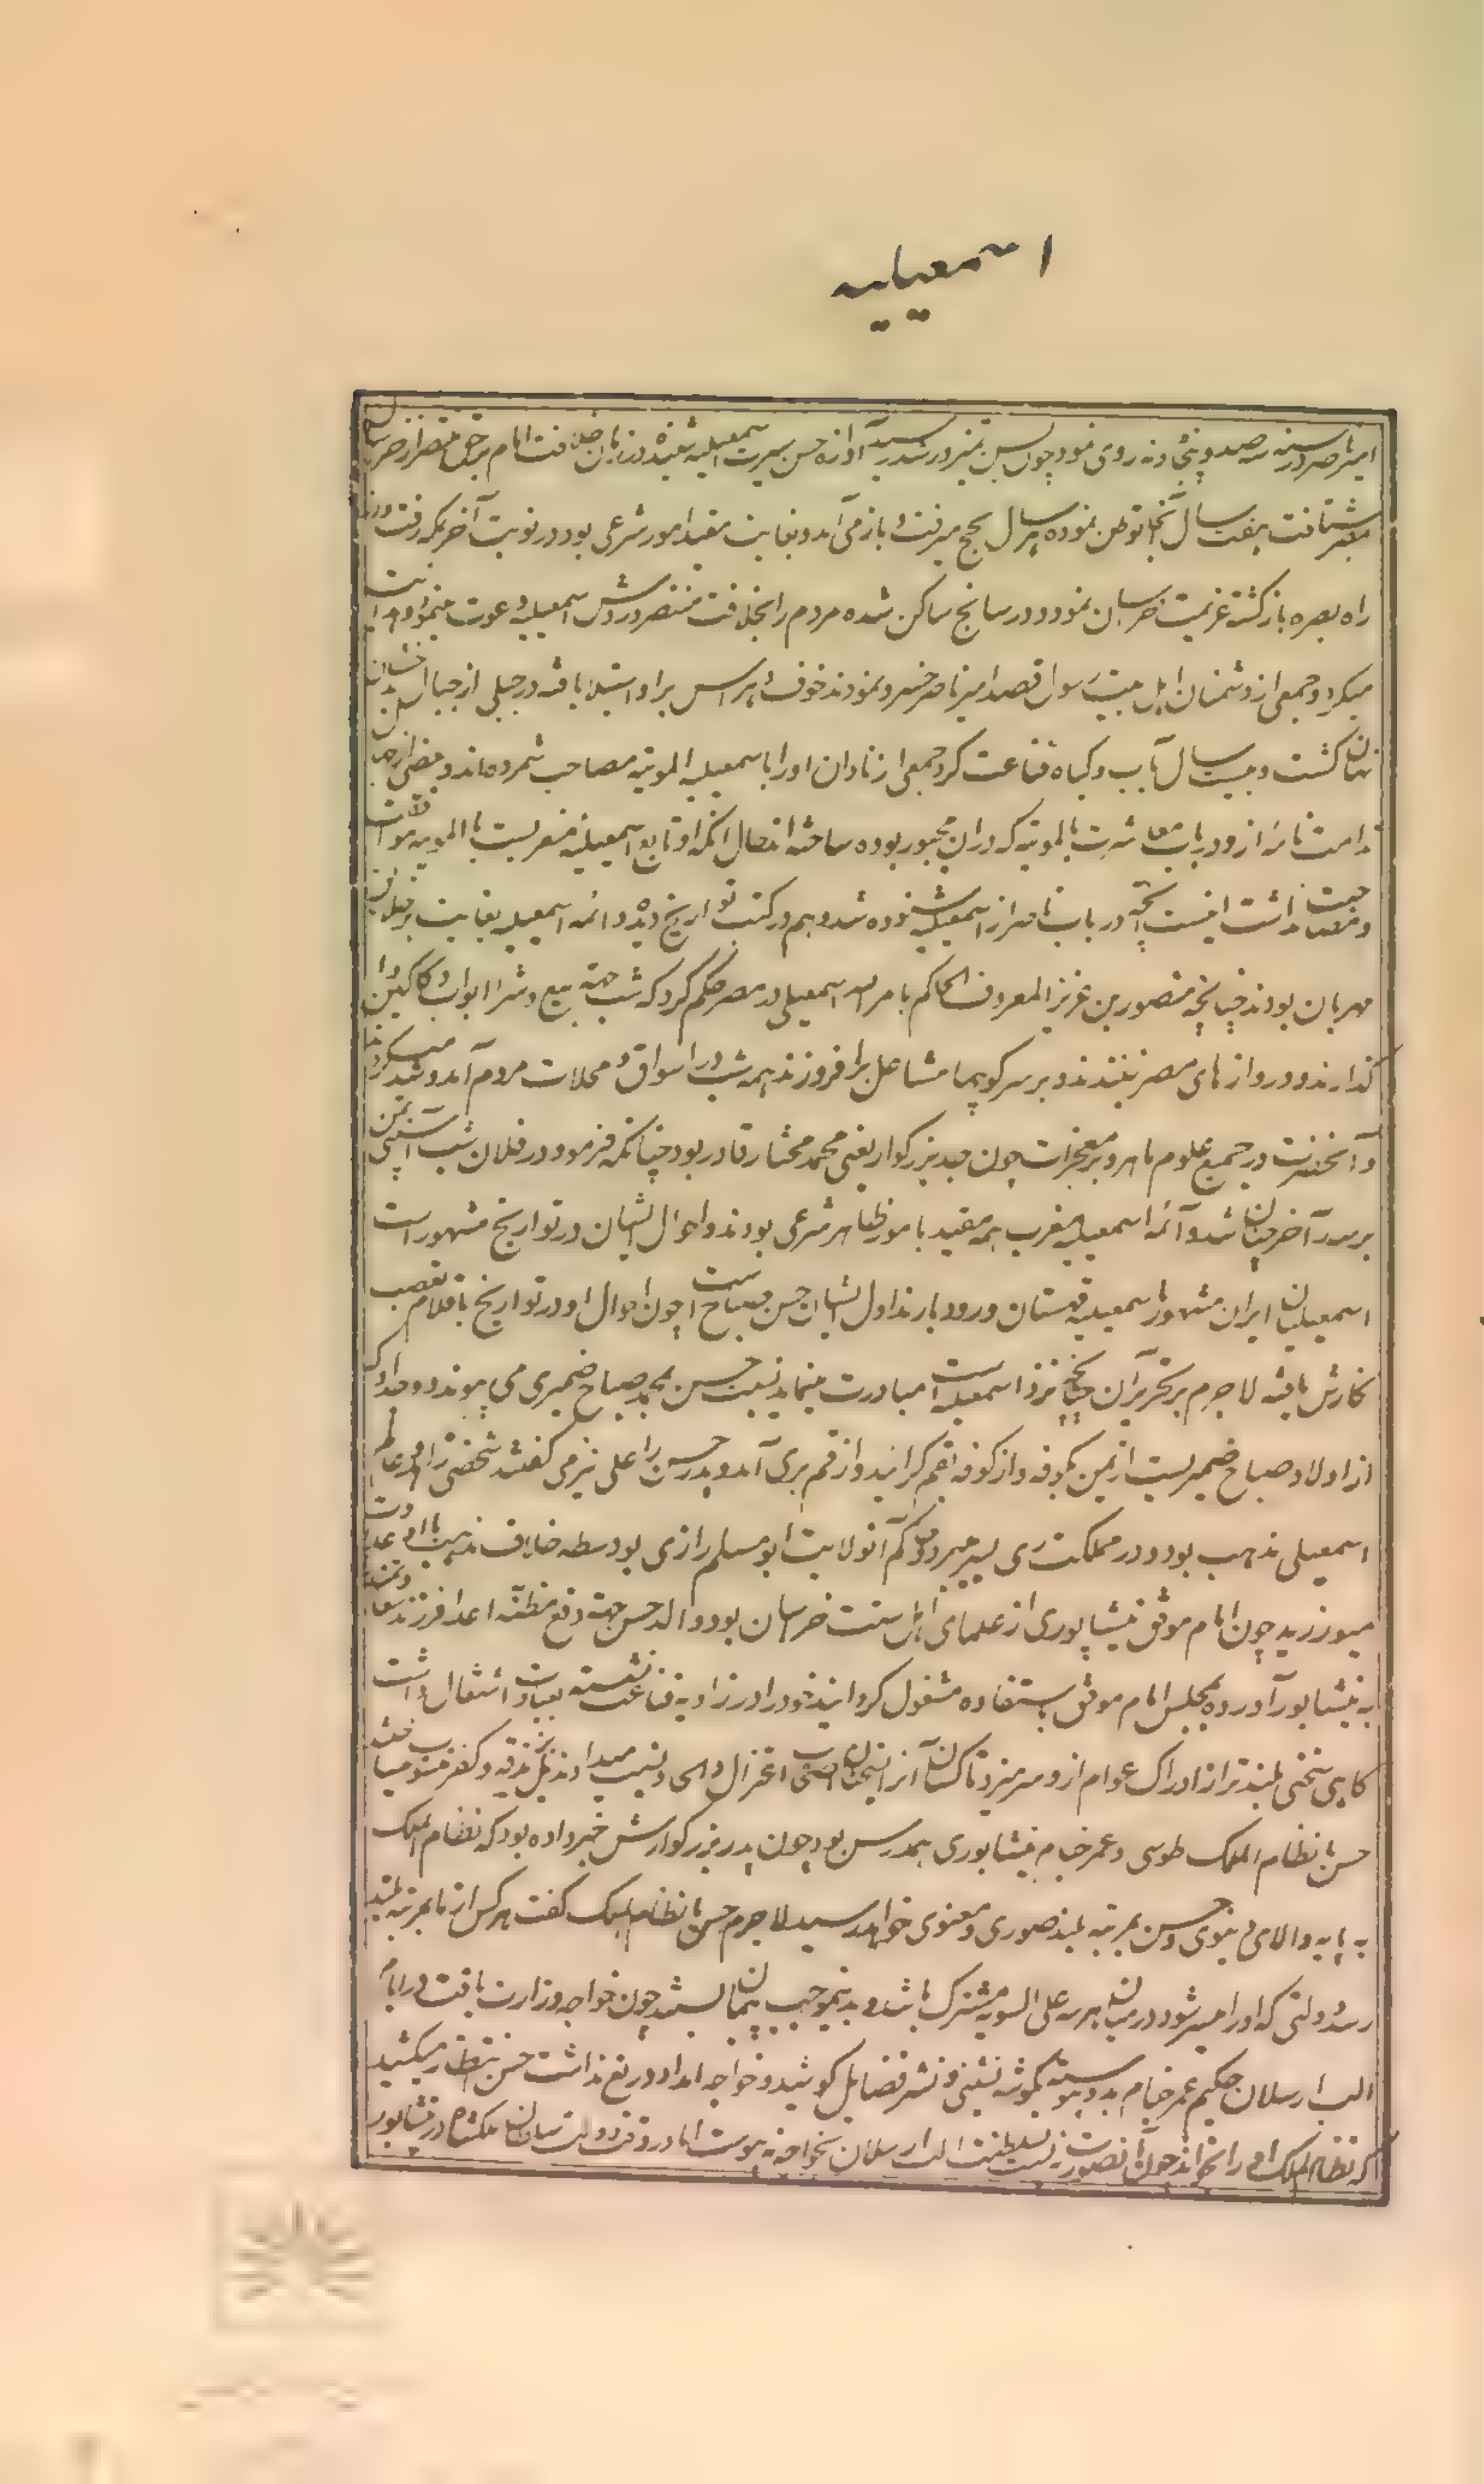 اسمعیلیه
امیر ناصر در سنه سه صد و پنجاه و نه روی نمود چون بسن تمیز و رشد رسید آوازه حسن سیرت اسمعیلیه شنیده در زمان خلافت امام بحق مستنصر از خراسان
بمصر شتافت هفت سال آنجا توطن نموده هر سال بحج میرفت و باز می آمد و بغایت مقید امور شرعی بود در نوبت آخر بمکه رفت و از
راه بصره بازگشته عزیمت خراسان نمود و در سانج ساکن شده مردم را بخلافت مستنصر و روش اسمعیلیه دعوت مینمود و هدایت
میکرد و جمعی از دشمنان اهل بیت رسول قصد امیر ناصر خسرو نمودند خوف و هراس بر او استیلا یافته در جبلی از جبال بدخشان
پنهان گشت و بیست سال بآب و گیاه قناعت کرد جمعی از نادان او را با اسمعیلیه الموتیه مصاحب شمرده اند و بعضی از
ندامت نامه از و در باب معاشرت با الموتیه که در آن مجبور بوده ساخته اند حال آنکه او تابع اسمعیلیه مغربیست با الموتیه
و مصاحبت نداشت اینست آنچه در باب ناصر از اسمعیلیه شنوده شد و هم در کتب تواریخ دیده و ائمه اسمعیلیه بغایت بر خلق
مهربان بودند چنانچه منصور بن عزیز المعروف الحاکم بامر الله اسمعیلی در مصر حکم کرد که شب جهته بیع و شرا ابواب دکاکین وا
گذارند و دروازهای مصر نبندند و بر سر کویها مشاعل برافروزند همه شب در اسواق و محلات مردم آمد و شد میکردند
و آنحضرت در جمیع علوم ماهر و بر معجزات چون جد بزرگوار یعنی محمد مختار قادر بود چنانکه فرمود در فلان شب آسیبی بمن
برسد آخر چنان شد و آئمه اسمعیلیه مغرب همه مقید بامور ظاهر شرعی بودند و احوال ایشان در تواریخ مشهور است
اسمعیلیان ایران مشهور باسمعیلیه قهستان و رودبارند اول ایشان حسن صباح است چون احوال او در تواریخ باقلام تعصب
نگارش یافته لاجرم بر تحریر آن چنانچه نزد اسمعیلیه است مبادرت مینماید نسبت حسن بمحمد صباح ضمیری می پیوندد و جد او که
از اولاد صباح ضمیریست از یمن بکوفه و از کوفه بقم گرائید و از قم بری آمد و پدر حسن را علی نیز می گفتند شخصی زاهد و عالم
اسمعیلی مذهب بود و در مملکت ری بسر میبرد و حاکم آنولایت ابو مسلم رازی بواسطه خلاف مذهب با او عداوت
میورزید چون امام موفق نیشاپوری از علمای اهل سنت خراسان بود والد حسن جهته دفع مظنه اعدا فرزند سعادتمند
به نیشابور آورده بمجلس امام موفق باستفاده مشغول گردانید خود در زاویه قناعت نشسته بعبادت اشتغال داشت
گاهی سخنی بلندتر از ادراک عوام ازو سر میزد ناکسان آنرا نسبت به اعتزال والحاد نسبت میدادند بلکه بزندقه و کفر منسوب میساختند
حسن با نظام الملک طوسی و عمر خیام نیشابوری همدرس بود چون پدر بزرگوارش خبر داده بود که نظام الملک
به پایه والای دنیوی و حسن بمرتبه بلند صوری و معنوی خواهد رسید لاجرم حسن با نظام الملک گفت هر کس از ما بمرتبه بلند
رسد دولتی که او را میسر شود در میان هر سه علی السویه مشترک باشد و بدینموجب پیمان بستند چون خواجه وزارت یافت در ایام
الب ارسلان حکیم عمر خیام بدو پیوسته بگوشه نشینی و نشر فضایل کوشید و خواجه امداد دریغ نداشت حسن انتظار میکشید
که نظام الملک او را بخواند چون آنصورت نبست بسلطنت الب ارسلان بخواجه نه پیوست اما در وقت دولت سلطان ملکشاه در نیشابور